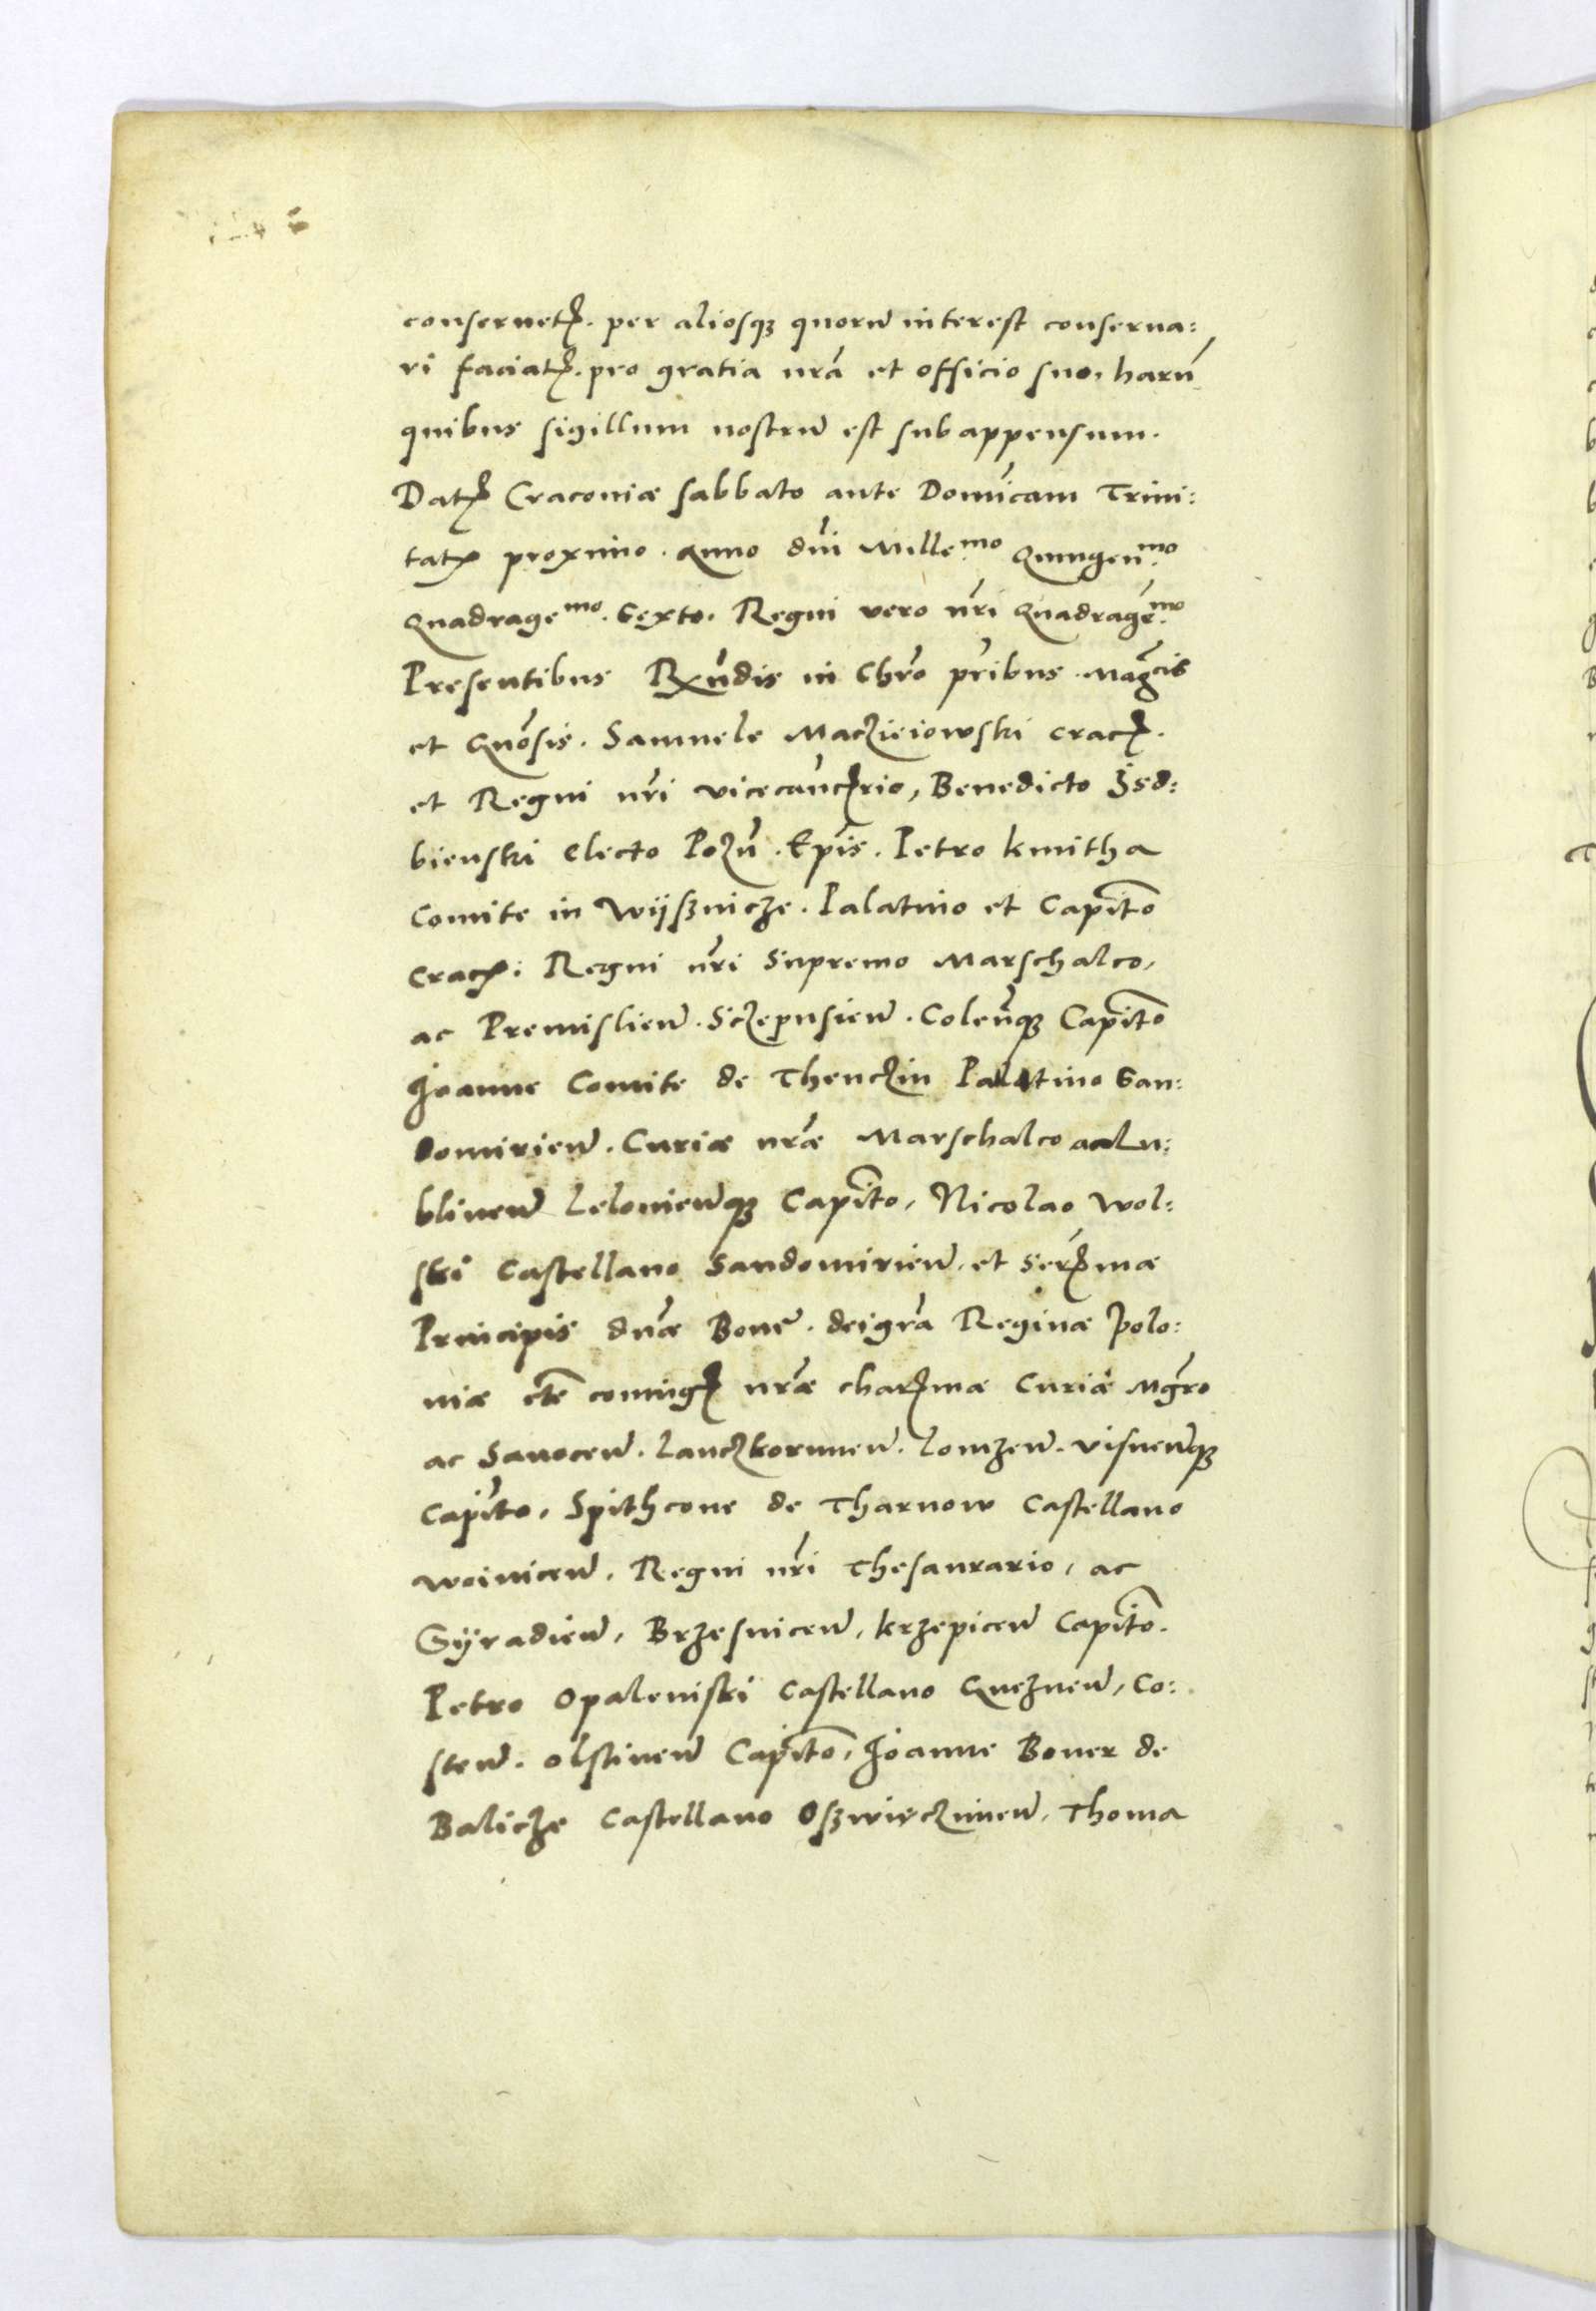 conseruetꝭ. per aliosqꝫ quorũ interest conserua:
ri faciatꝭ. pro gratia nrã et officio suo, harũ
quibus sigillum nostrũ est subappensum.
Datꝭ Cracouiæ sabbato ante Domĩcam Trini:
tatꝭ proximo. Anno dñi Mille.mo Quingen.mo
Quadrage.mo Sexto. Regni vero nr̃i Quadrage.mo
Presentibus Rx̃ndis in Chrõ pr̃ibus. Magcis
et Gñosis. Samuele Maczieiowski Cracꝭ.
et Regni nr̃i vicecancꝭrio, Benedicto Jsd:
bienski electo Pozñ. Ep̃is. Petro kmitha
Comite in Wijsznicze. Palatino et Capitõ
Cracꝭ: Regni nr̃i Supremo Marschalco,
ac Premislieñ. Sczepusieñ. Coleñqꝫ Capitõ
Joanne Comite de Thenczin Palatino San:
domirieñ. Curiæ nr̃æ Marschalco ac Lu:
blineñ Lelouieñqꝫ Capitõ, Nicolao Wol:
ski Castellano Sandomirieñ. et Serꝭmæ
Principis dñæ Bonæ. dei gr̃a Reginæ Polo:
niæ etc̃ coniugꝭ nr̃æ charꝭmæ Curiæ Mgr̃o
ac Sanoceñ. Lanczkoruneñ. Lomzeñ. Visneñqꝫ
Capitõ, Spithcone de Tharnow Castellano
Woiniceñ, Regni nr̃i Thesaurario, ac
Syradieñ, Brzesniceñ, krzepiceñ Capitõ.
Petro Opaleniski Castellano Gnezneñ, Co:
steñ. Olstineñ Capitõ, Joanne Boner de
Balicze Castellano Oszwięczimeñ, Thoma